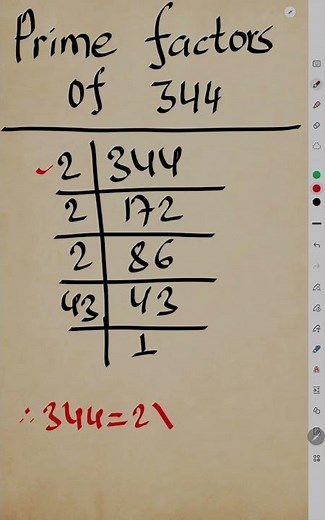 Prime factors
of 344
2 344
2 172
2 86
43 43
1
∴ 344 = 2 \